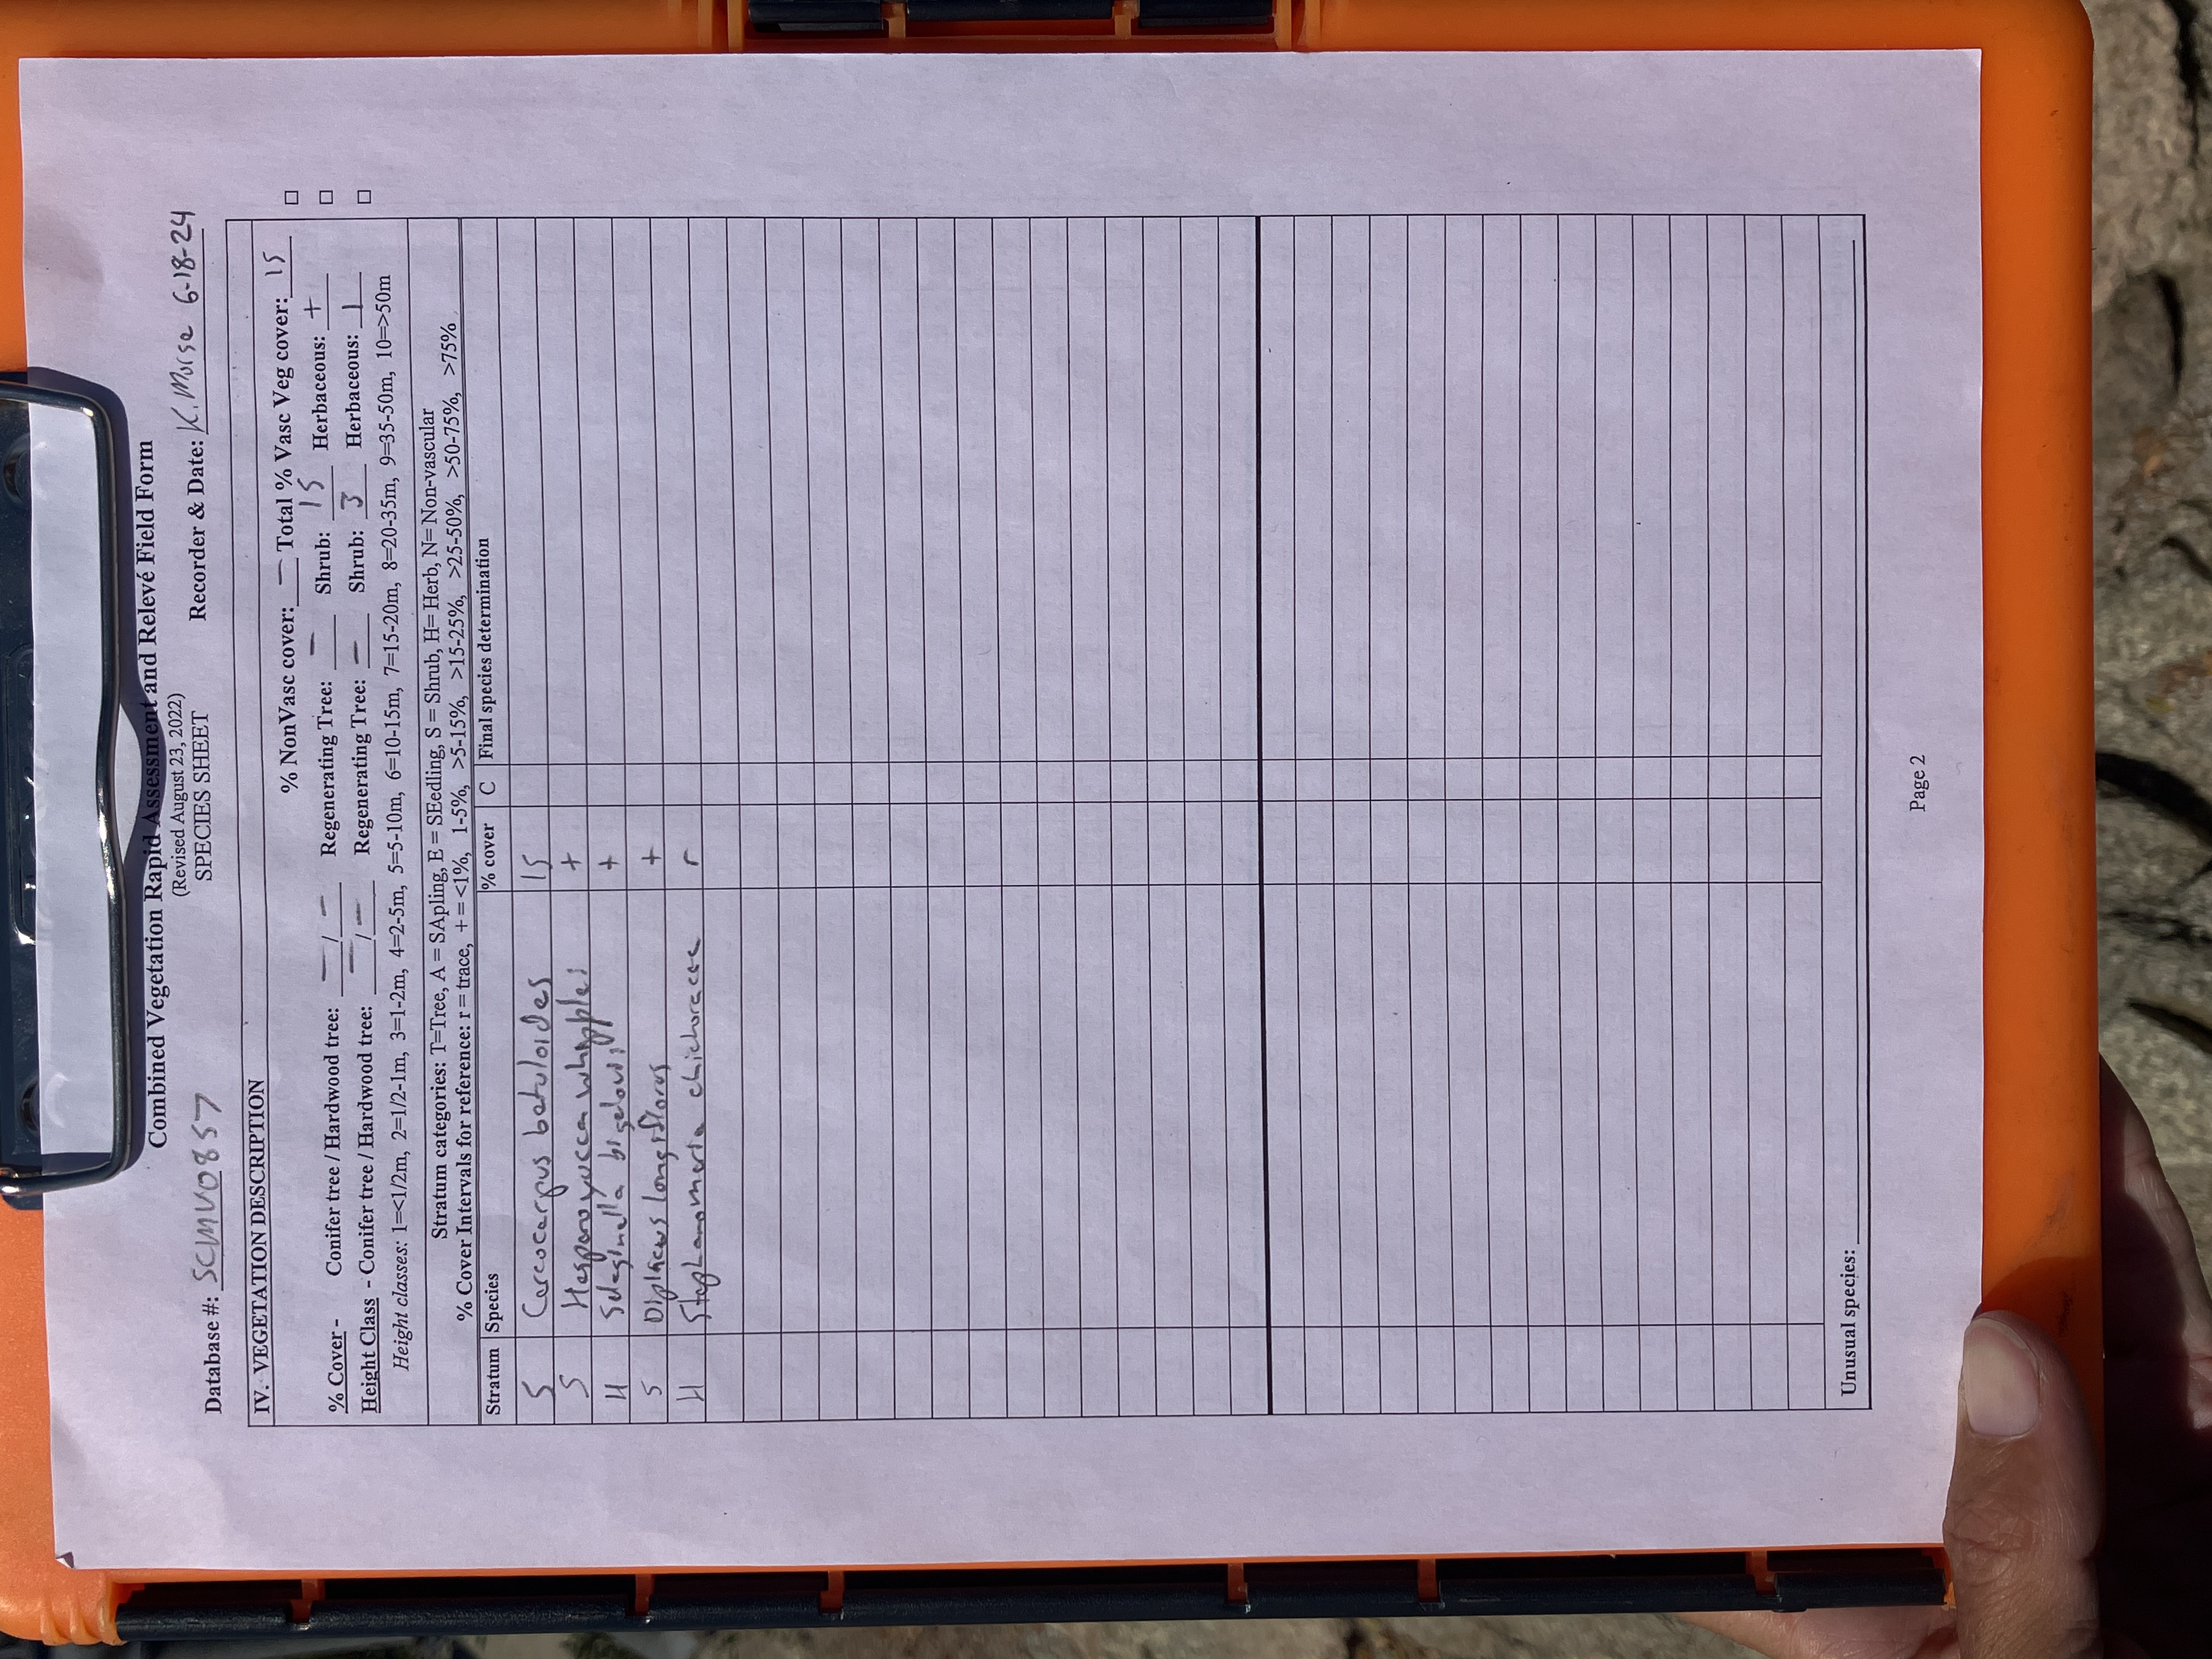 Combined Vegetation Rapid Assessment and Relevé Field Form
(Revised August 23, 2022)
SPECIES SHEET
Database #: SCMV0857 Recorder & Date: K. Morse 6-18-24
IV. VEGETATION DESCRIPTION
% NonVasc cover: — Total % Vasc Veg cover: 15 □
% Cover - Conifer tree / Hardwood tree: — / — Regenerating Tree: — Shrub: 15 Herbaceous: + □
Height Class - Conifer tree / Hardwood tree: — / — Regenerating Tree: — Shrub: 3 Herbaceous: 1 □
Height classes: 1=<1/2m, 2=1/2-1m, 3=1-2m, 4=2-5m, 5=5-10m, 6=10-15m, 7=15-20m, 8=20-35m, 9=35-50m, 10=>50m
Stratum categories: T=Tree, A = SApling, E = SEedling, S = Shrub, H= Herb, N= Non-vascular
% Cover Intervals for reference: r = trace, + = <1%, 1-5%, >5-15%, >15-25%, >25-50%, >50-75%, >75%
Stratum Species % cover C Final species determination
S Cercocarpus betuloides 15
S Hesperoyucca whipplei +
H Selaginella bigelovii +
S Diplacus longiflorus +
H Stephanomeria chichoraceae r
Unusual species:
Page 2